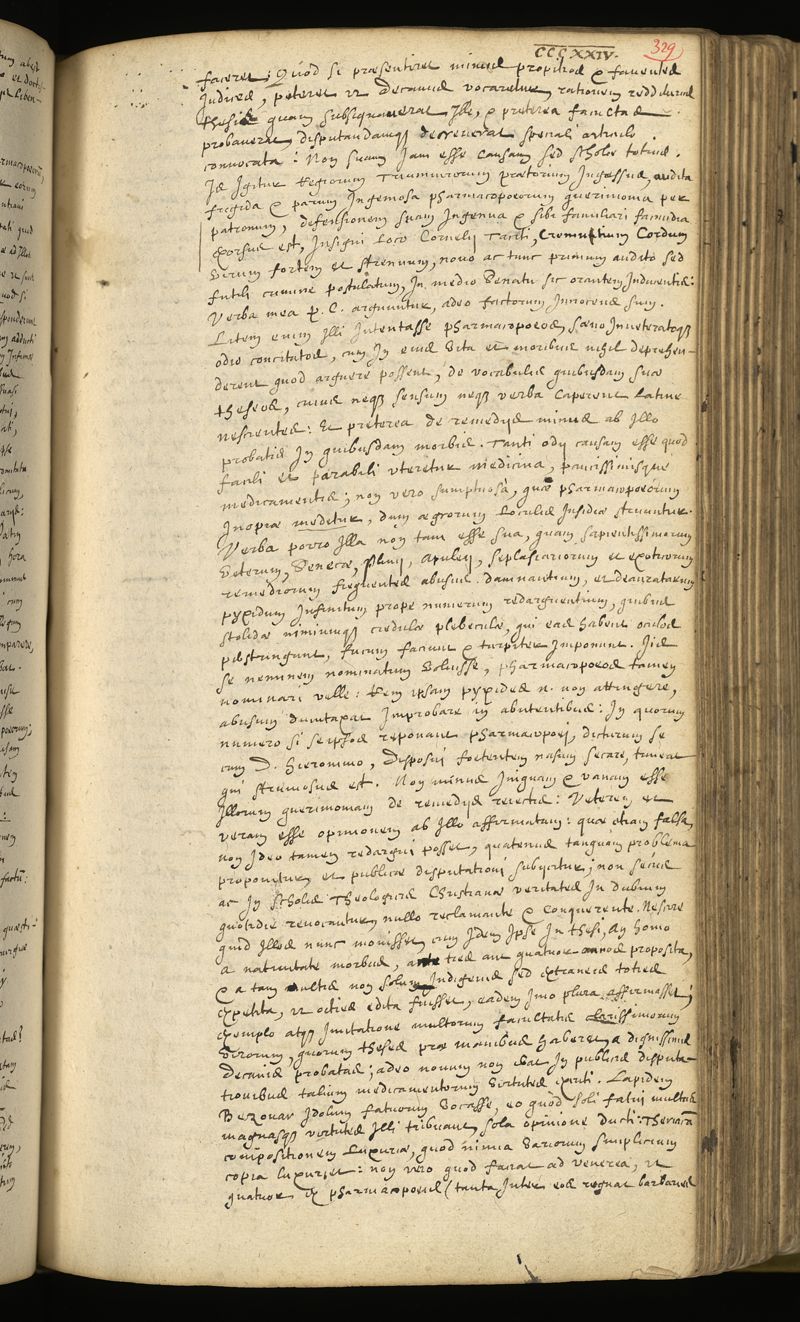 CCCXXIV. 329
faceret; Quod si praesentiret minus propitios & faventes
Judices, peteret ut Decanus vocaretur, rationem redditurus
thesis quam subsignaverat Ille, & praeterea facultas
probaverat, disputandamq; decreverat speciali articulo
convocata: Non suam jam esse causam sed scholae totius.
Is Igitur Regiorum Triumvirorum praetorium Ingressus, audita
frigida & parum Ingeniosa pharmacopoeorum querimonia per
patronum, defensionem suam Ingenua & sibi familiari facundia
exorsus est, Insigni loco Cornelij Taciti, Cremutium Cordum
virum fortem et strenuum, novo ac tunc primum audito sed
futili crimine postulatum, In medio Senatu sic orantem Inducentis:
Verba mea P. C. arguuntur, adeo factorum Innocens sum.
Litem enim Illi Intentasse pharmacopoeos, saevo Inveteratoq;
odio concitatos, cum In eius vita et moribus nihil deprehen-
derent quod arguere possent, de vocabulis quibusdam suae
theseos, cuius neq; sensum neq; verba caperent Latine
nescientes: Et praeterea de remedijs minus ab Illo
probatis In quibusdam morbis. Tanti odij causam esse quod
facili et parabili uteretur medicina, paucissimisque
medicamentis; non vero sumptuosa, quae pharmacopoeorum
Inopiae medetur, dum aegrorum loculis Insidiae struuntur.
Verba porro Illa non tam esse sua, quam sapientissimorum
veterum, Senecae, Plinij, Apuleij, seplasiariorum et exoticorum
remediorum frequentes abusus damnantium, et deauratarum
pyxidum Infinitum prope numerum redarguentium, quibus
stolidae nimiumq; credulae plebeculae, qui eas habent oculos
praestringunt, fucum faciunt & turpiter Imponunt. Iis
se neminem nominatum voluisse, pharmacopoeos tamen
nominari velle: Rem ipsam pyxides n. non attingere,
abusum dumtaxat Improbare in abutentibus: In quorum
numero si seipsos reponant pharmacopoei, dicturum se
cum D. Hieronimo, Disposui foetentem nasum secare, timeat
qui strumosus est. Non minus Iniquam & vanam esse
Illorum querimoniam de remedijs reiectis: Veterem et
veram esse opinionem ab Illo affirmatam: quae etiam falsa,
non Ideo tamen redargui posset, quatenus tanquam problema
proponitur, et publicae disputationi subijcitur; non secus
ac In scholis Theologicis Christianae veritates In dubium
quotidie revocantur, nullo reclamante & conquerente. Nescire
quid Illos nunc movisset, cum Idem Ipse In thesi, An homo
a nativitate morbus, ante tres aut quatuor annos proposita,
& a tam multis non solum Indigenis sed extraneis toties
expetita, ut octies edita fuisset, eadem Imo plura affirmasset;
exemplo atq; Imitatione multorum facultatis clarissimorum
virorum, quorum theses prae manibus haberet, a dignissimis
Decanis probatas; adeo novum non erat In publicis disputa-
tionibus talium medicamentorum virtutes exuti. Lapidem
Bezouar Idolum fatuorum vocasse, eo quod soli fatui multas
magnasq; virtutes Illi tribuant, sola opinione ducti: Theriacam
compositionem Luxuriae, quod nimia variorum simplicium
copia luxuriet: non vero quod faciat ad venerea, ut
quatuor ex pharmacopoeis (tanta Inter eos regnat barbaries